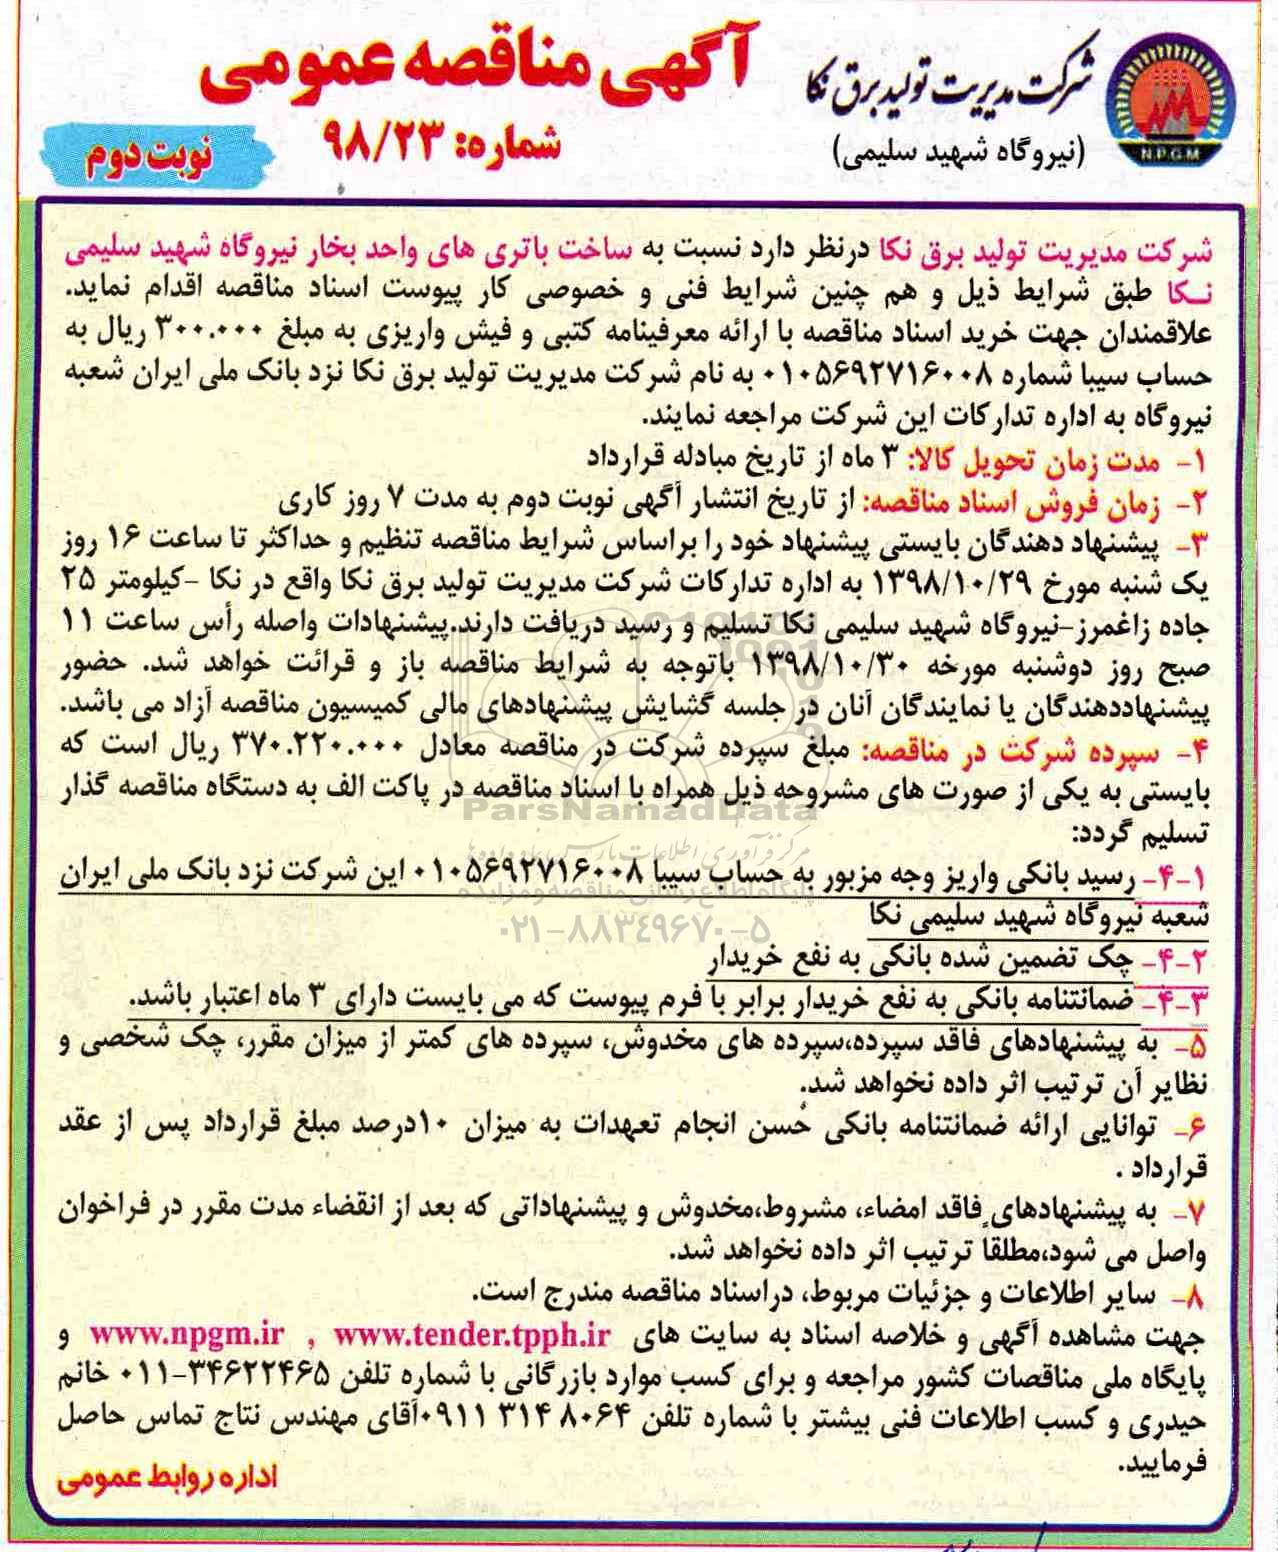 آگهی مناقصه عمومی
شماره: ۹۸/۲۳
نوبت دوم
شرکت مدیریت تولید برق نکا
(نیروگاه شهید سلیمی)
N.P.G.M
شرکت مدیریت تولید برق نکا درنظر دارد نسبت به ساخت باتری های واحد بخار نیروگاه شهید سلیمی
نکا طبق شرایط ذیل و هم چنین شرایط فنی و خصوصی کار پیوست اسناد مناقصه اقدام نماید.
علاقمندان جهت خرید اسناد مناقصه با ارائه معرفینامه کتبی و فیش واریزی به مبلغ ۳۰۰.۰۰۰ ریال به
حساب سیبا شماره ۰۱۰۵۶۹۲۷۱۶۰۰۸ به نام شرکت مدیریت تولید برق نکا نزد بانک ملی ایران شعبه
نیروگاه به اداره تدارکات این شرکت مراجعه نمایند.
۱- مدت زمان تحویل کالا: ۳ ماه از تاریخ مبادله قرارداد
۲- زمان فروش اسناد مناقصه: از تاریخ انتشار آگهی نوبت دوم به مدت ۷ روز کاری
۳- پیشنهاد دهندگان بایستی پیشنهاد خود را براساس شرایط مناقصه تنظیم و حداکثر تا ساعت ۱۶ روز
یک شنبه مورخ ۱۳۹۸/۱۰/۲۹ به اداره تدارکات شرکت مدیریت تولید برق نکا واقع در نکا -کیلومتر ۲۵
جاده زاغمرز-نیروگاه شهید سلیمی نکا تسلیم و رسید دریافت دارند.پیشنهادات واصله رأس ساعت ۱۱
صبح روز دوشنبه مورخه ۱۳۹۸/۱۰/۳۰ باتوجه به شرایط مناقصه باز و قرائت خواهد شد. حضور
پیشنهاددهندگان یا نمایندگان آنان در جلسه گشایش پیشنهادهای مالی کمیسیون مناقصه آزاد می باشد.
۴- سپرده شرکت در مناقصه: مبلغ سپرده شرکت در مناقصه معادل ۳۷۰.۲۲۰.۰۰۰ ریال است که
بایستی به یکی از صورت های مشروحه ذیل همراه با اسناد مناقصه در پاکت الف به دستگاه مناقصه گذار
ParsNamadData
تسلیم گردد:
مرکز فرآوری اطلاعات پارس نماد داده ها
۴-۱- رسید بانکی واریز وجه مزبور به حساب سیبا ۰۱۰۵۶۹۲۷۱۶۰۰۸ این شرکت نزد بانک ملی ایران
پایگاه اطلاع رسانی مناقصه و مزایده
شعبه نیروگاه شهید سلیمی نکا
۰۲۱-۸۸۳٤۹۶۷۰-۵
۴-۲- چک تضمین شده بانکی به نفع خریدار
۴-۳- ضمانتنامه بانکی به نفع خریدار برابر با فرم پیوست که می بایست دارای ۳ ماه اعتبار باشد.
۵- به پیشنهادهای فاقد سپرده،سپرده های مخدوش، سپرده های کمتر از میزان مقرر، چک شخصی و
نظایر آن ترتیب اثر داده نخواهد شد.
۶- توانایی ارائه ضمانتنامه بانکی حُسن انجام تعهدات به میزان ۱۰درصد مبلغ قرارداد پس از عقد
قرارداد .
۷- به پیشنهادهای فاقد امضاء، مشروط،مخدوش و پیشنهاداتی که بعد از انقضاء مدت مقرر در فراخوان
واصل می شود،مطلقاً ترتیب اثر داده نخواهد شد.
۸- سایر اطلاعات و جزئیات مربوط، دراسناد مناقصه مندرج است.
جهت مشاهده آگهی و خلاصه اسناد به سایت های www.tender.tpph.ir , www.npgm.ir و
پایگاه ملی مناقصات کشور مراجعه و برای کسب موارد بازرگانی با شماره تلفن ۳۴۶۲۲۴۶۵-۰۱۱ خانم
حیدری و کسب اطلاعات فنی بیشتر با شماره تلفن ۰۹۱۱ ۳۱۴ ۸۰۶۴آقای مهندس نتاج تماس حاصل
فرمایید.
اداره روابط عمومی